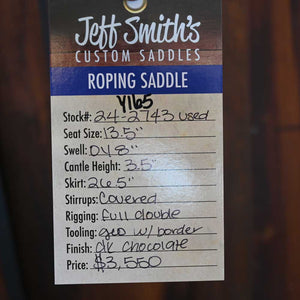 Jeff Smith's
CUSTOM SADDLES
ROPING SADDLE
Y165
Stock#: 24-2743 used
Seat Size: 13.5"
Swell: 048"
Cantle Height: 3.5"
Skirt: 26.5"
Stirrups: Covered
Rigging: full double
Tooling: geo w/ border
Finish: dk chocolate
Price: $3,550